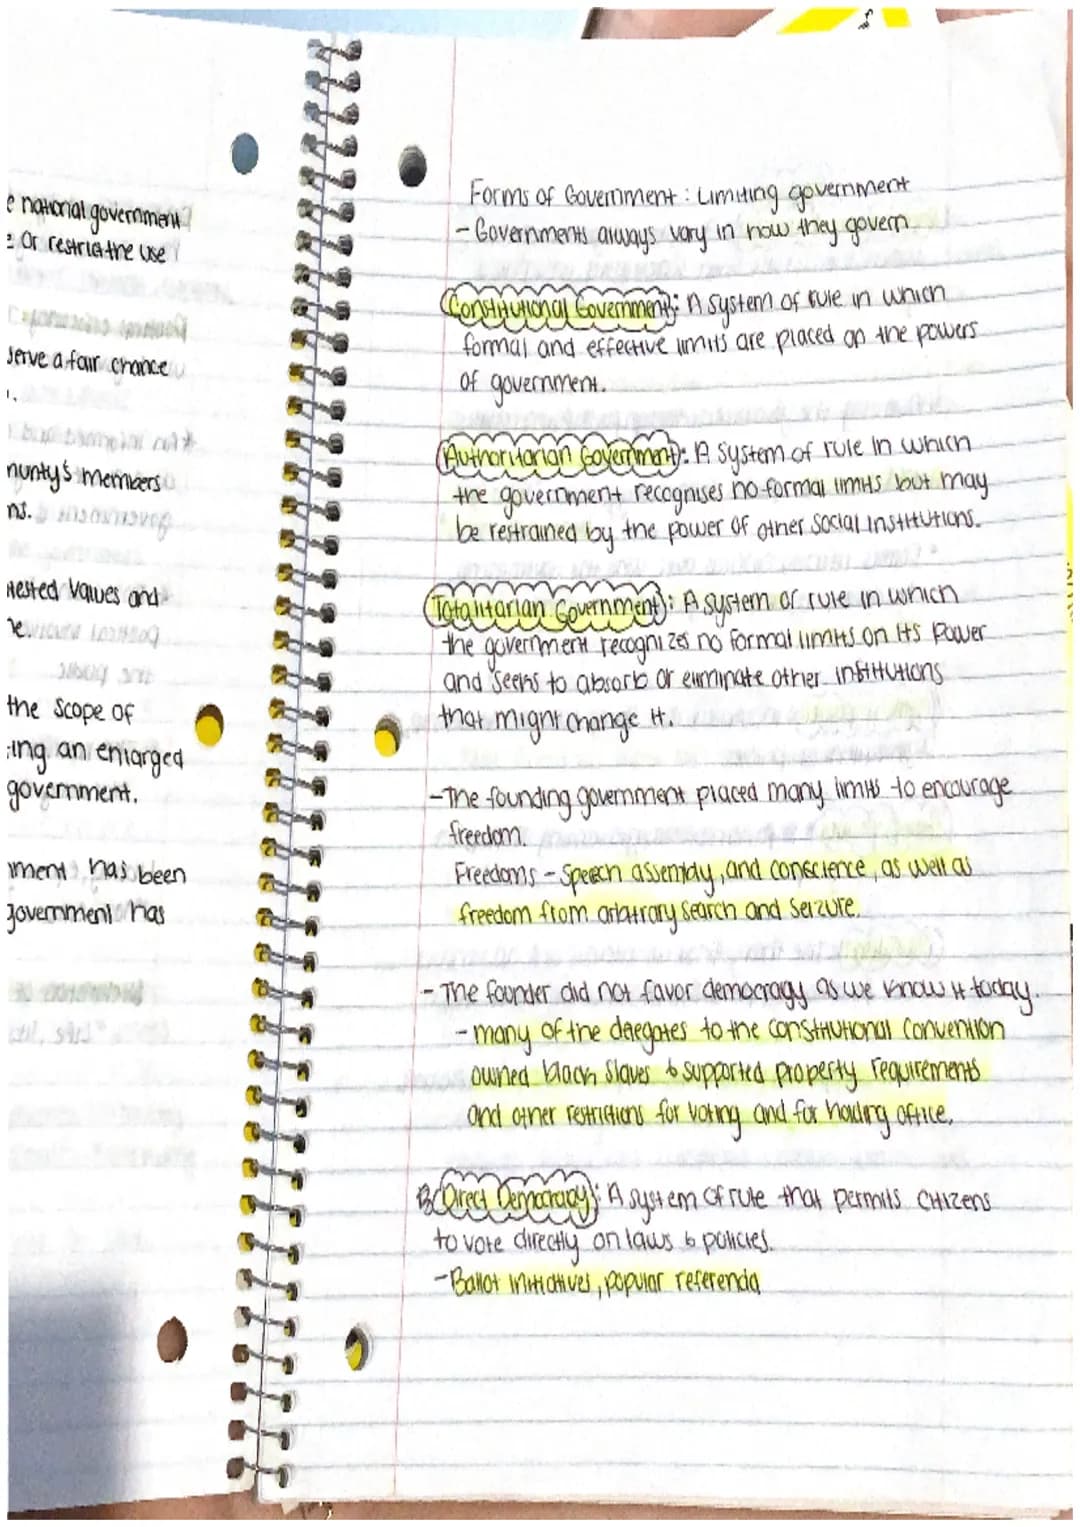 e national government
e or restrict the use
serve a fair chance
munty's members
ns.
nested values and
the scope of
ting an enlarged
government.
nment has been
government has
Forms of Government : Limiting government
- Governments always vary in how they govern.
Constitutional Government: A system of rule in which
formal and effective limits are placed on the powers
of government.
Authoritarian Government: A system of rule in which
the government recognises no formal limits but may
be restrained by the power of other social institutions.
Totalitarian Government: A system of rule in which
the government recognizes no formal limits on its power
and seeks to absorb or eliminate other institutions
that might change it.
- The founding government placed many limits to encourage
freedom.
Freedoms - Speech assembly, and conscience, as well as
freedom from arbitrary search and seizure.
- The founder did not favor democracy as we know it today.
- many of the delegates to the constitutional convention
owned black slaves & supported property requirements
and other restrictions for voting and for holding office.
Direct Democracy: A system of rule that permits citizens
to vote directly on laws & policies.
- Ballot initiatives, popular referenda